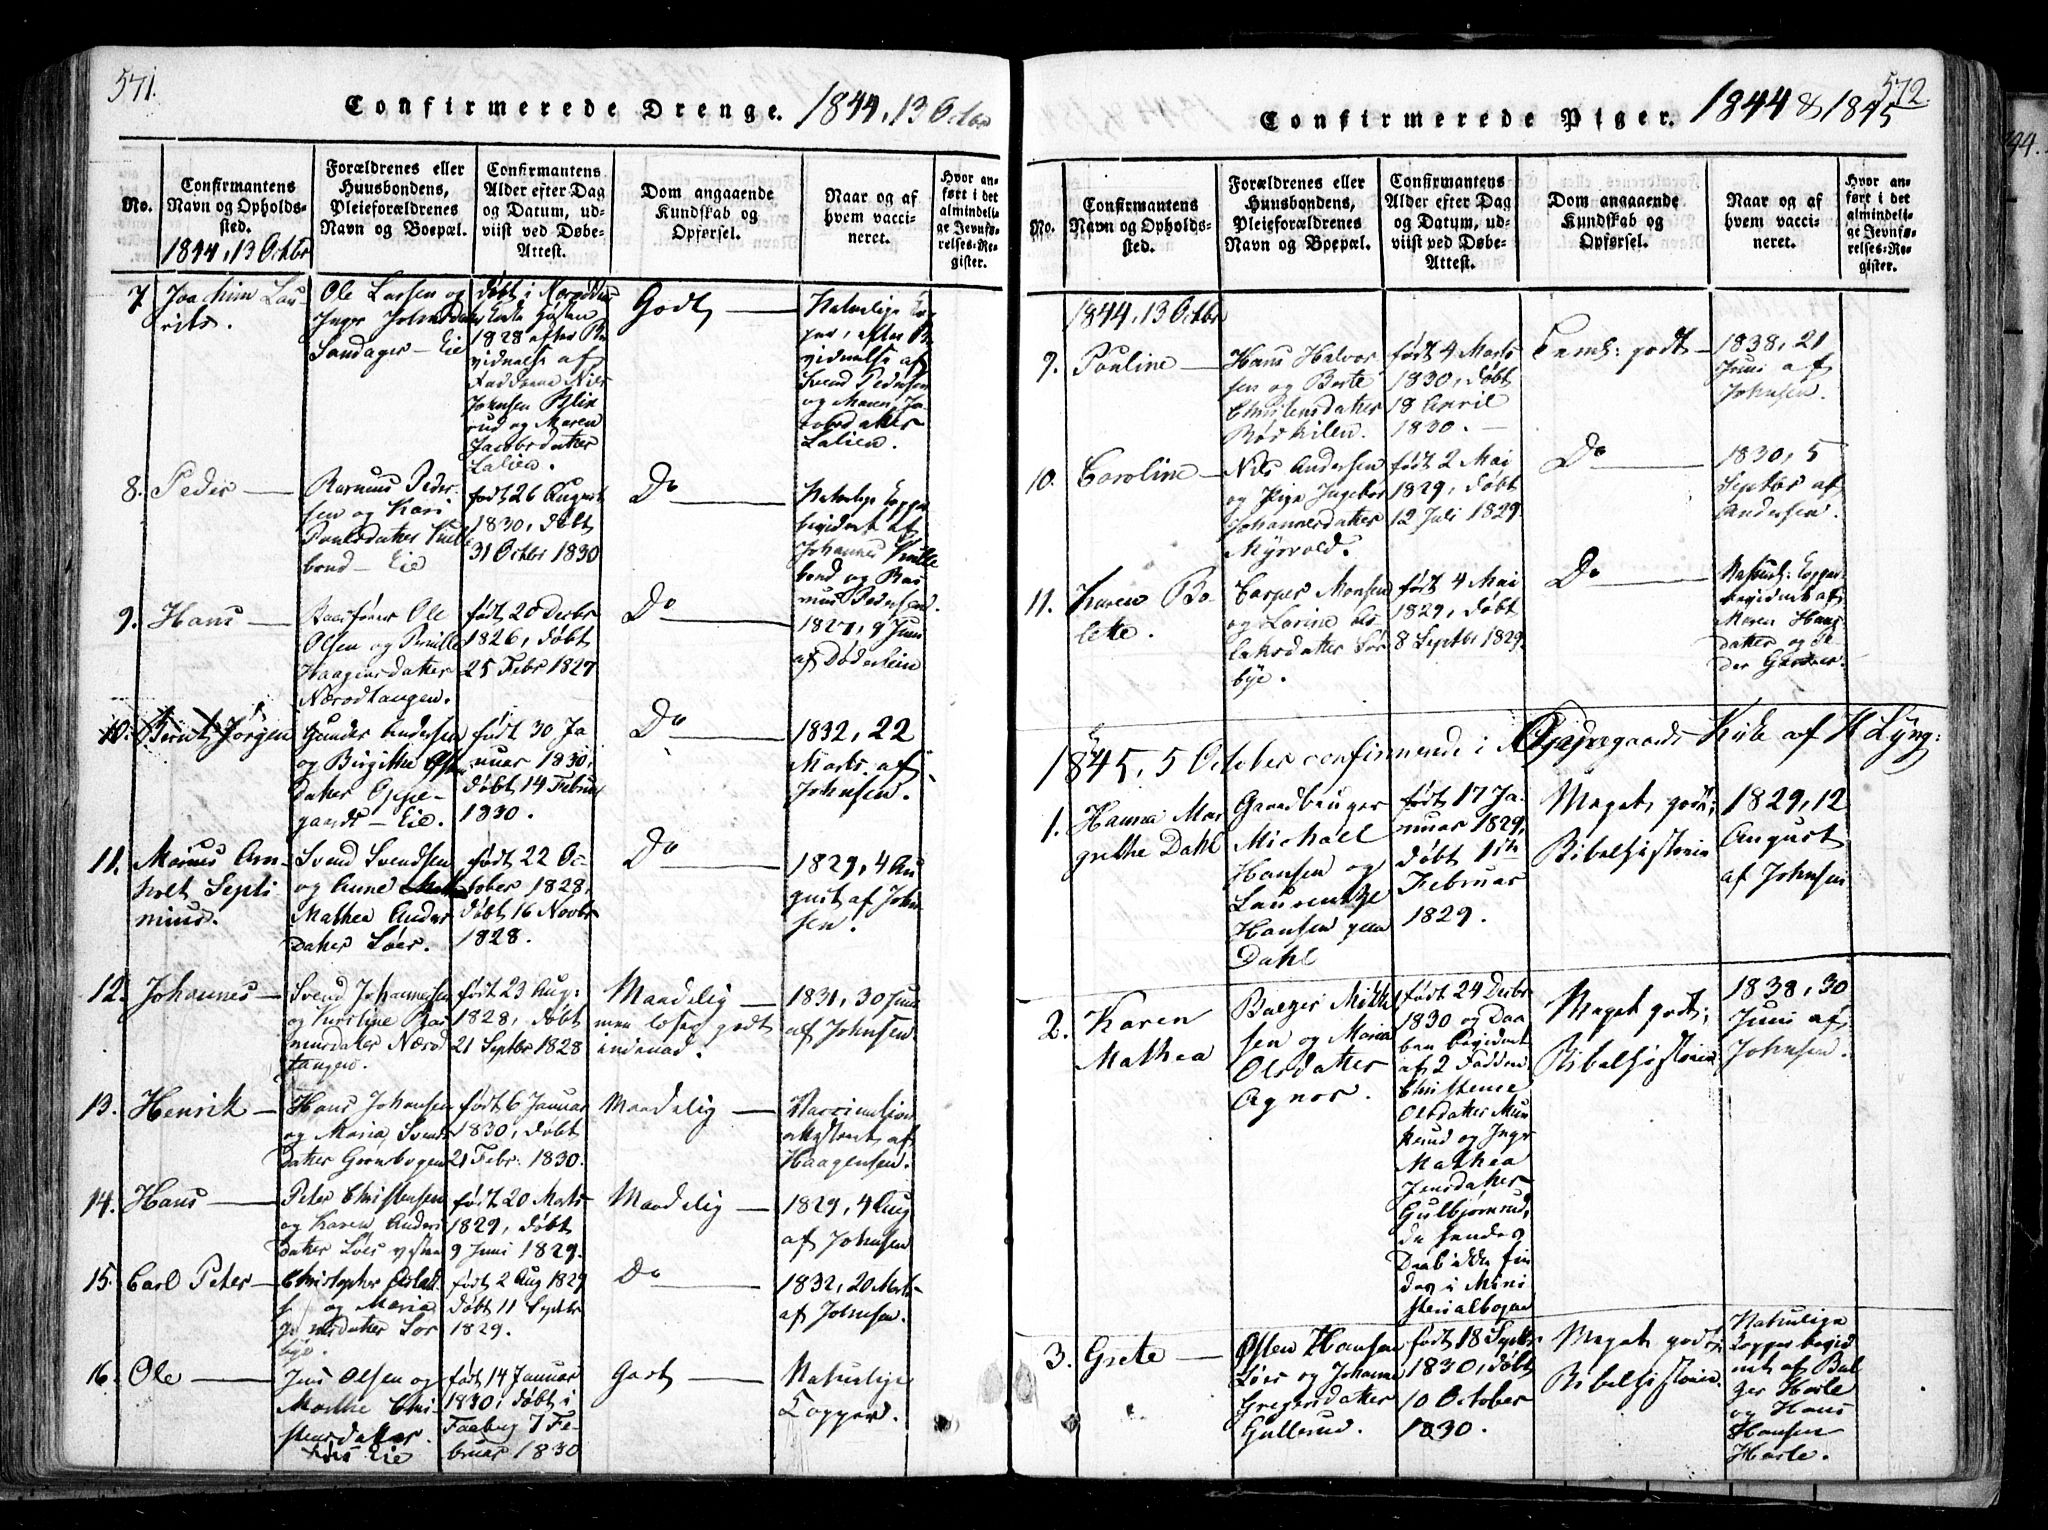 571.
Confirmerede Drenge. 1844, 13 Octbr
No.
Confirmantens
Navn og Opholds-
sted.
1844, 13 Octbr
Forældrenes eller
Huusbondens,
Pleieforældrenes
Navn og Boepæl.
Confirmantens
Alder efter Dag
og Datum, ud-
viist ved Døbe-
Attest.
Dom angaaende
Kundskab og
Opførsel.
Naar og af
hvem vacci-
neret.
Hvor an-
ført i det
almindeli-
ge Jevnfø-
relses-Re-
gister.
7. Joachim Lau-
rits.
Ole Larsen og
Inger
Sandager — Eie
døbt i
1828 efter Be
vidnelse af
Fadderne Nils
Johnsen
rud og Maren
Jacobsdatter
Lalien.
Godt —
Naturlige Kop
per, efter Be
vidnelse af
Svend Pedersen
og Maren Ja-
cobsdatter
Lalien.
8. Peder —
Rasmus Peder-
sen og Kari
Poulsdatter
— Eie
født 26 August
1830, døbt
31 Octbr 1830
Do —
Naturlige Kopper
bevidnet af
Johannes
og Ras
mus Pedersen.
9. Hans —
Ole
Olsen og Pernille
Haagensdatter
Næsodtangen.
født 20 Decbr
1826, døbt
25 Febr 1827
Do —
1827, 9 Juni
af Døderlein
10. Bernt Jørgen
Gunder Andersen
og Birgithe
datter Oppe-
gaard — Eie.
født 30 Ja
nuar 1830,
døbt 14 Februar
1830.
Do —
1832, 22
Marts af
Johnsen.
11. Marius An-
Septi
mius.
Svend Svendsen
og Anne
Mathea Anders
datter Løes.
født 22 Oc-
tober 1828,
døbt 16 Novbr
1828.
Do —
1829, 4 Au
gust af John
sen.
12. Johannes —
Svend Johannesen
og Kirstine Ras
musdatter Næsod
tangen.
født 23 Aug:
1828, døbt
21 Septbr 1828
Maadelig —
men læser godt
indenad.
1831, 30 Juni
af Johnsen.
13. Henrik —
Hans Johansen
og Maria Svends
datter Geensbogen
født 6 Januar
1830, døbt
21 Febr. 1830.
Maadelig —
Vaccination
attesteret af
Haagensen.
14. Hans —
Peter Christensen
og Karen Anders
datter Løes
født 20 Marts
1829, døbt
9 Juni 1829.
Maadelig —
1829, 4 Aug
af Johnsen
15. Carl Peter —
Christopher
og Maria
datter Sør
bye.
født 2 Aug 1829
døbt 11 Septbr
1829.
Do —
1832, 20 Marts
af Johnsen.
16. Ole —
Jens Olsen og
Marthe Chri-
stensdatter
Eie
født 14 Januar
1830, døbt i
7 Fe-
bruar 1830
Godt —
Naturlige
Kopper.
572.
Confirmerede Piger. 1844 & 1845
No.
Confirmantens
Navn og Opholds-
sted.
Forældrenes eller
Huusbondens,
Pleieforældrenes
Navn og Boepæl.
Confirmantens
Alder efter Dag
og Datum, ud-
viist ved Døbe-
Attest.
Dom angaaende
Kundskab og
Opførsel.
Naar og af
hvem vacci-
neret.
Hvor an-
ført i det
almindeli-
ge Jevnfø-
relses-Re-
gister.
1844, 13 Octbr
9. Pouline —
Hans Halvor
sen og Berte
Christensdatter
født 4 Marts
1830, døbt
18 April
1830. —
Temml: godt —
1838, 21
Juni af
Johnsen.
10. Caroline —
Nils Andersen
og Pige Ingebor
Johannesdatter
Myrvold.
født 2 Mai
1829, døbt
12 Juli 1829
Do —
1830, 5
Septbr af
Andersen.
11. Karen Bo-
lette.
Casper Monsen
og Lorine As-
laksdatter Sør
bye.
født 4 Mai
1829, døbt
8 Septbr 1829.
Do —
Naturl: Kopper
bevidnet af
Maren Hans
datter og Pe
der
1845, 5 October confirmerede i Oppegaards Kirke af H Lyng:
1. Hanna Mar
grethe Dahl
Gaardbruger
Michael
Hansen og
Laurentze
Hansen paa
Dahl
født 17 Ja-
nuar 1829,
døbt 1ste
Februar
1829.
Meget god:
Bibelhistorie
1829, 12
August
af Johnsen
2. Karen
Mathea
Baltzer Mikkel
sen og Maria
Olsdatter
Agnor.
født 24 Decbr
1830 og Daa
ben bevidnet
af 2 Faddere
Christence
Olsdatter Mun
kerud og Inger
Mathea
Jensdatter
Gulbjørnrud,
da hendes
Daab ikke fin
des i Mini
sterialbogen
Meget godt;
Bibelhistorie
1838, 30
Juni af
Johnsen.
3. Grete —
Østen Hansen
Løes og Johanne
Gregersdatter
Gullerud.
født 18 Septbr
1830, døbt
10 October
1830.
Meget godt;
Bibelhistorie
Naturlige
Kopper bevid
net af Balt
zer Hasle
og Hans
Hansen
Hasle.